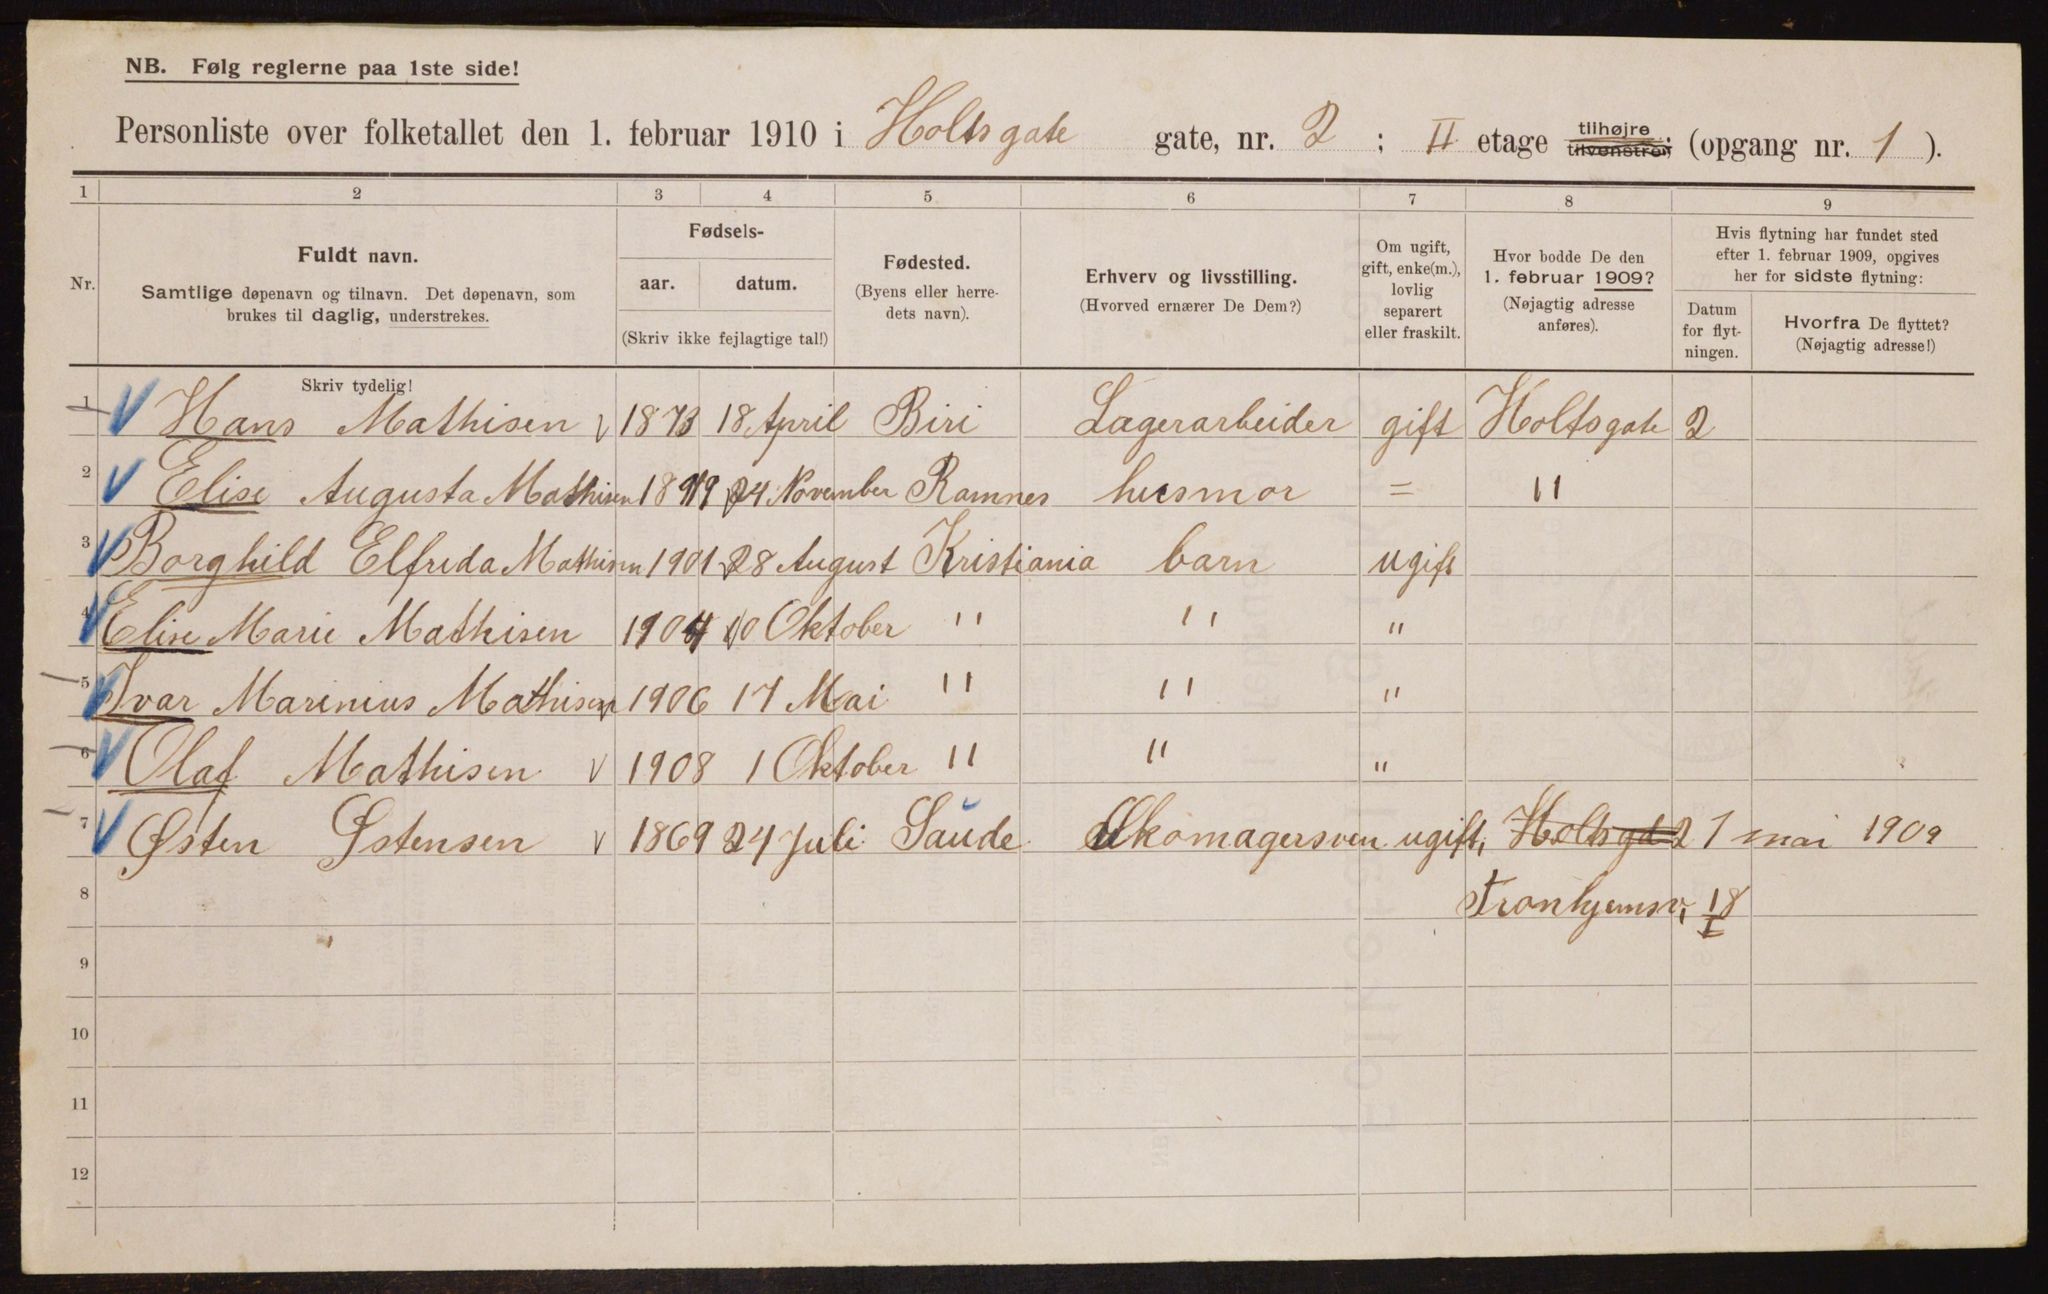 NB. Følg reglerne paa 1ste side!
Personliste over folketallet den 1. februar 1910 i Holtsgate gate, nr. 2 ; II etage tilhøjre tilvenstre; (opgang nr. 1 ).
1 2 3 4 5 6 7 8 9
Nr.
Fuldt navn.
Samtlige døpenavn og tilnavn. Det døpenavn, som
brukes til daglig, understrekes.
Fødsels-
aar. datum.
(Skriv ikke fejlagtige tal!)
Fødested.
(Byens eller herre-
dets navn).
Erhverv og livsstilling.
(Hvorved ernærer De Dem?)
Om ugift,
gift, enke(m.),
lovlig
separert
eller fraskilt.
Hvor bodde De den
1. februar 1909?
(Nøjagtig adresse
anføres).
Hvis flytning har fundet sted
efter 1. februar 1909, opgives
her for sidste flytning:
Datum
for flyt-
ningen.
Hvorfra De flyttet?
(Nøjagtig adresse!)
Skriv tydelig!
1 Hans Mathisen 1873 18 April Biri Lagerarbeider gift Holtsgate 2
2 Elise Augusta Mathisen 24 November Ramnes husmor = "
3 Borghild Elfrida Mathisen 1901 28 August Kristiania barn ugift
4 Elise Marie Mathisen 1904 10 Oktober " " "
5 Ivar Marinius Mathisen 1906 17 Mai " " "
6 Olaf Mathisen 1908 1 Oktober " " "
7 Østen Østensen 1869 24 Juli Saude Skomagersven ugift, Holtsgd 2 1 mai 1909
8 Tronhjemsv, 18 I
9
10
11
12